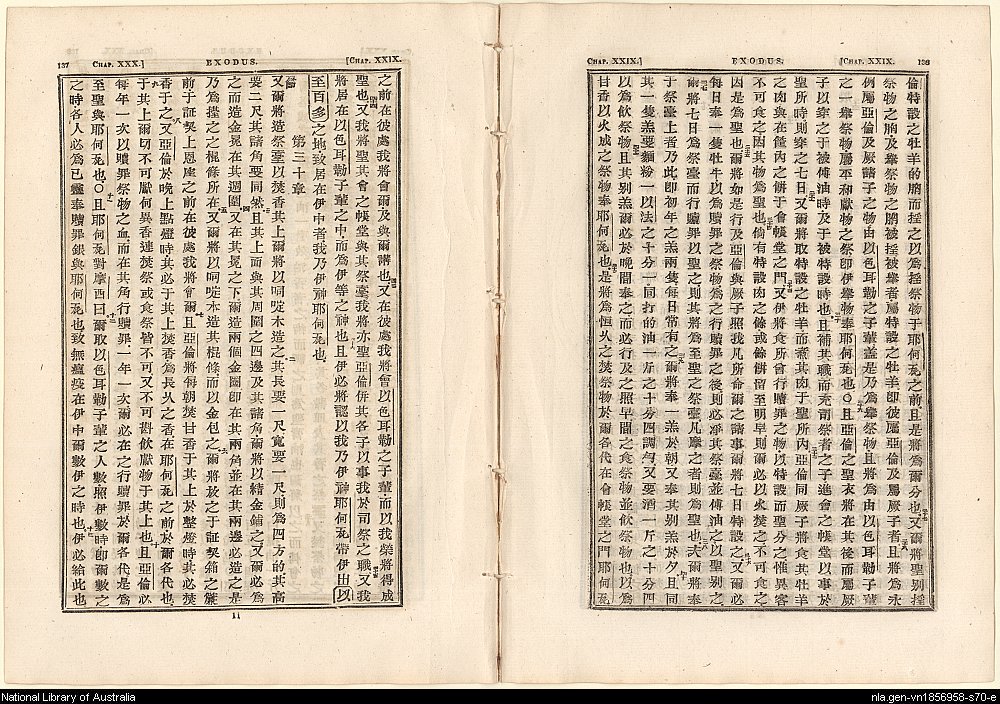 CHAP. XXIX.] EXODUS. [CHAP. XXIX. 136
倫特設之牡羊的腩而搖之以為搖祭物于耶何𠅏之前且是將為爾分也又爾將聖别搖
祭物之胸及舉祭物之腩被搖被舉者屬特設之牡羊即彼屬亞倫及屬厥子者且將為永
例屬亞倫及厥諸子之物由以色耳勒之子輩蓋是乃為舉祭物且將為由以色耳勒子輩
之一舉祭物屬平和獻物之祭即伊舉物奉耶何𠅏也○且亞倫之聖衣將在其後而屬厥
子以穿之于被傅油時及于被特設時也且補其職而充司祭者之子進會之帳堂以事於
聖所時則穿之七日又爾將取特設之牡羊而煮其肉于聖所內亞倫同厥子將食其牡羊
之肉與在筐內之餅于會帳堂之門又伊將食所曾行贖罪之物以特設而聖分之惟異客
不可食之因其物為聖也倘有特設肉之餘或餘餅留至明早則爾必以火焚之不可食之
因是為聖也爾將如是行及亞倫與厥子照我凡所命爾之諸事爾將七日特設之又爾必
每日奉一隻牡牛以為贖罪之祭物為之行贖罪之後則必凈其祭臺並傅油之以聖别之
爾將七日為祭臺而行贖罪以聖之則其將為至聖之祭臺凡摩之者則為聖也夫爾將奉
于祭臺上者乃此即初年之羔兩隻每日常有之爾將奉一羔於朝又奉其别羔於夕且同
其一隻羔要麵粉一以法之十分一同打的油一斤之十分四調勻又要酒一斤之十分四
以為飲祭物且其别羔爾必於晚間奉之而必行及之照早間之食祭物並飲祭物也以為
甘香以火成之祭物奉耶何𠅏也是將為恒久之焚祭物於爾各代在會帳堂之門耶何𠅏
137 CHAP. XXX.] EXODUS. [CHAP. XXIX.
之前在彼處我將會爾及與爾講也又在彼處我將會以色耳勒之子輩而以我榮將得成
聖也又我將聖其會之帳堂與其祭臺我將亦聖亞倫併其各子以事我於司祭之職又我
將居在以色耳勒子輩之中而為伊等之神也且伊必將認以我乃伊神耶何𠅏帶伊出以
至百多之地致居在伊中者我乃伊神耶何𠅏也
第三十章
又爾將造祭臺以焚香其上爾將以呵啶木造之其長要一尺寬要一尺則為四方的其高
要二尺其諸角要同然且其上面與其周圍之四邊及其諸角爾將以結金鋪之又爾必為
之而造金冕在其週圍又在其冕之下爾造兩個金圈即在其兩角並在其兩邊必造之是
乃為擡之之棍條所在又爾將以呵啶木造其棍條而以金包之爾將放之于証契箱之簾
前于証契上恩座之前在彼處我將會爾且亞倫將每朝焚甘香于其上于整燈時其必焚
香于之又亞倫於晚上點燈時其必于其上焚香為長久之香在耶何𠅏之前於爾各代也
于其上爾切不可獻何異香連焚祭或食祭皆不可又不可斟飲獻物于其上也且亞倫必
每年一次以贖罪祭物之血而在其角行贖罪一年一次爾必在之行贖罪於爾各代是為
至聖與耶何𠅏也○且耶何𠅏對摩西曰爾取以色耳勒子輩之人數照伊數時即爾數之
之時各人必為己靈奉贖罪銀與耶何𠅏也致無瘟疫在伊中爾數伊之時也伊必給此也
11
National Library of Australia
nla.gen-vn1856958-s70-e